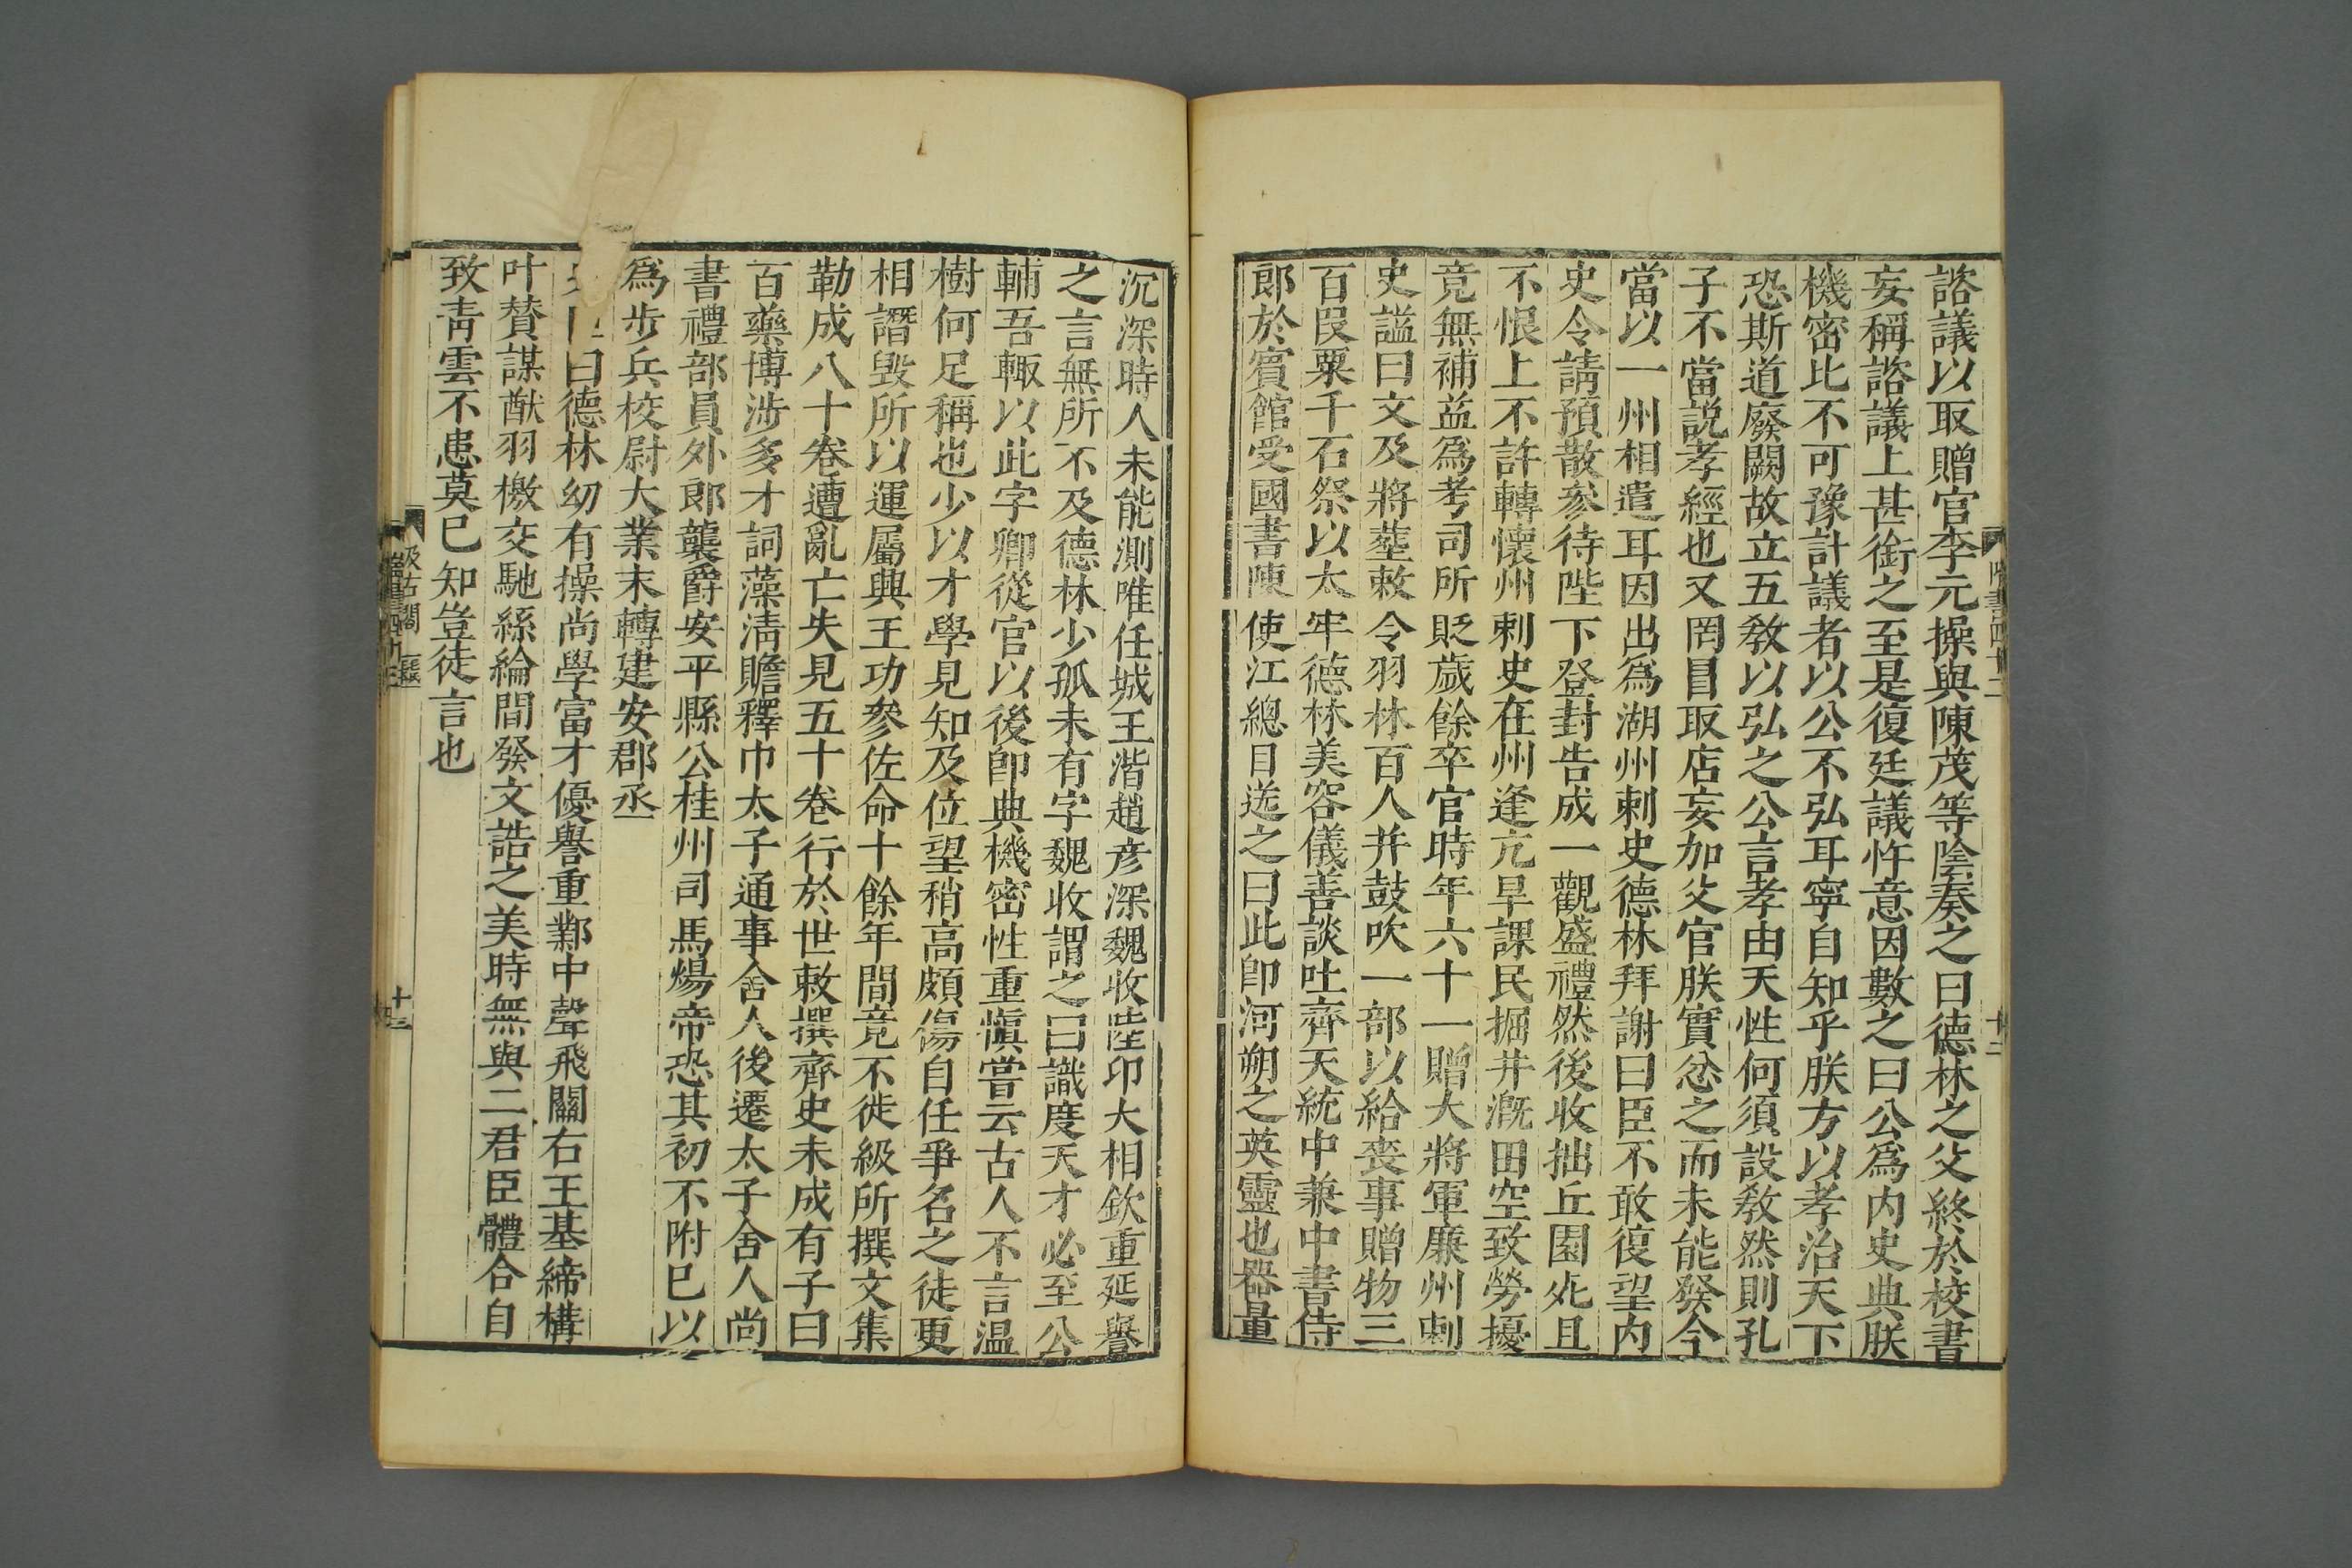 諮議以取贈官李元操與陳茂等陰奏之曰德林之父終於校書
妄稱諮議上甚銜之至是復廷議忤意因數之曰公爲内史典朕
機密比不可豫計議者以公不弘耳寧自知乎朕方以孝治天下
恐斯道廢闕故立五敎以弘之公言孝由天性何須設敎然則孔
子不當説孝經也又罔冒取店妄加父官朕實忿之而未能發今
當以一州相遣耳因出爲湖州刺史德林拜謝曰臣不敢復望内
史令請預散參待陛下登封告成一觀盛禮然後收拙丘園死且
不恨上不許轉懷州刺史在州逢亢旱課民掘井漑田空致勞擾
竟無補益爲考司所貶歲餘卒官時年六十一贈大將軍廉州刺
史謚曰文及將塟敕令羽林百人并鼓吹一部以給喪事贈物三
百段粟千石祭以太牢德林美容儀善談吐齊天統中兼中書侍
郎於賓館受國書陳使江總目送之曰此卽河朔之英靈也器量
十二
沉深時人未能測唯任城王湝趙彦深魏收陸卬大相欽重延譽
之言無所不及德林少孤未有字魏收謂之曰識度天才必至公
輔吾輙以此字卿從官以後卽典機密性重愼嘗云古人不言温
樹何足稱也少以才學見知及位望稍高頗傷自任爭名之徒更
相譖毁所以運屬興王功參佐命十餘年間竟不徙級所撰文集
勒成八十卷遭亂亡失見五十卷行於世敕撰齊史未成有子曰
百藥博涉多才詞藻淸贍釋巾太子通事舍人後遷太子舍人尚
書禮部員外郎襲爵安平縣公桂州司馬煬帝恐其初不附巳以
爲步兵校尉大業末轉建安郡丞
曰德林幼有操尚學富才優譽重鄴中聲飛關右王基締構
叶賛謀猷羽檄交馳絲綸間發文誥之美時無與二君臣體合自
致靑雲不患莫巳知豈徒言也
汲古閣
十三